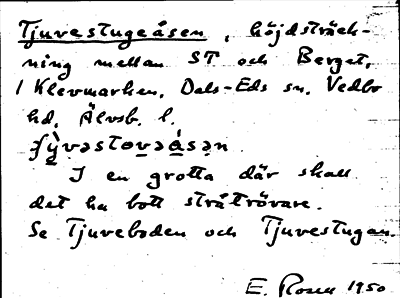 Tjuvestugeåsen, höjdsträck-
ning mellan ST och Berget,
i Klevmarken, Dals-Eds sn, Vedbo
hd, Älvsb. l.
I en grotta där skall
det ha bott stråtrövare.
Se Tjuveboden och Tjuvestugan.
E. Rosell 1950